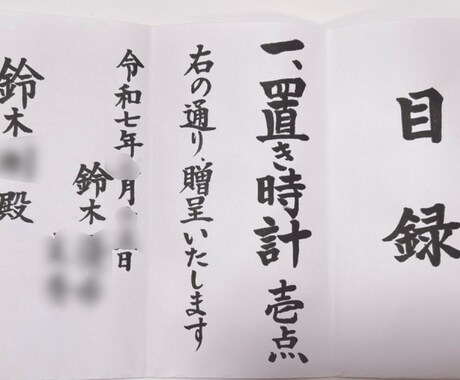 目録
一、置き時計 壱点
右の通り、贈呈いたします
令和七年 月 日
鈴木
鈴木 殿